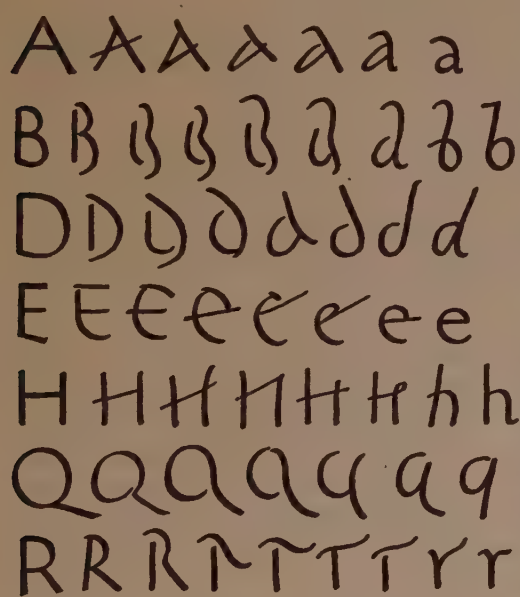 A A A A a a a
B B B B B B d b b
D D D D d d d d
E E E e e e e e
H H H H H H h h
Q Q Q Q q q q
R R R r r r r r r